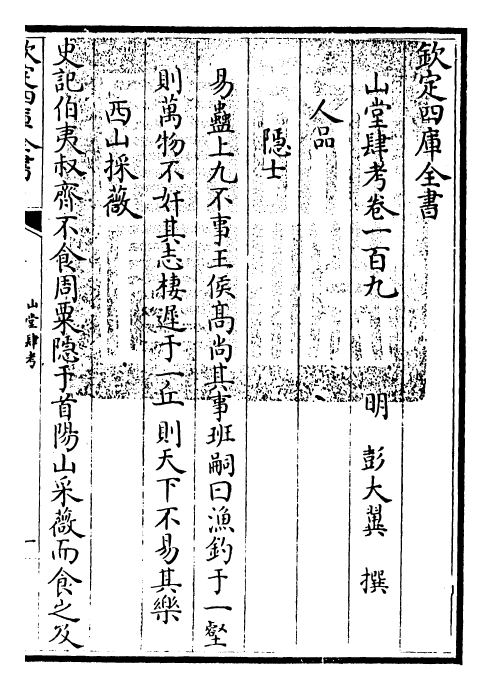 欽定四庫全書
山堂肆考卷一百九　明　彭大翼　撰
人品
隠士
易蠱上九不事王侯髙尚其事班嗣曰漁釣于一壑
則萬物不奸其志棲遲于一丘則天下不易其樂
西山採薇
史記伯夷叔齊不食周粟隠于首陽山采薇而食之及
欽定四庫全書
山堂肆考
一